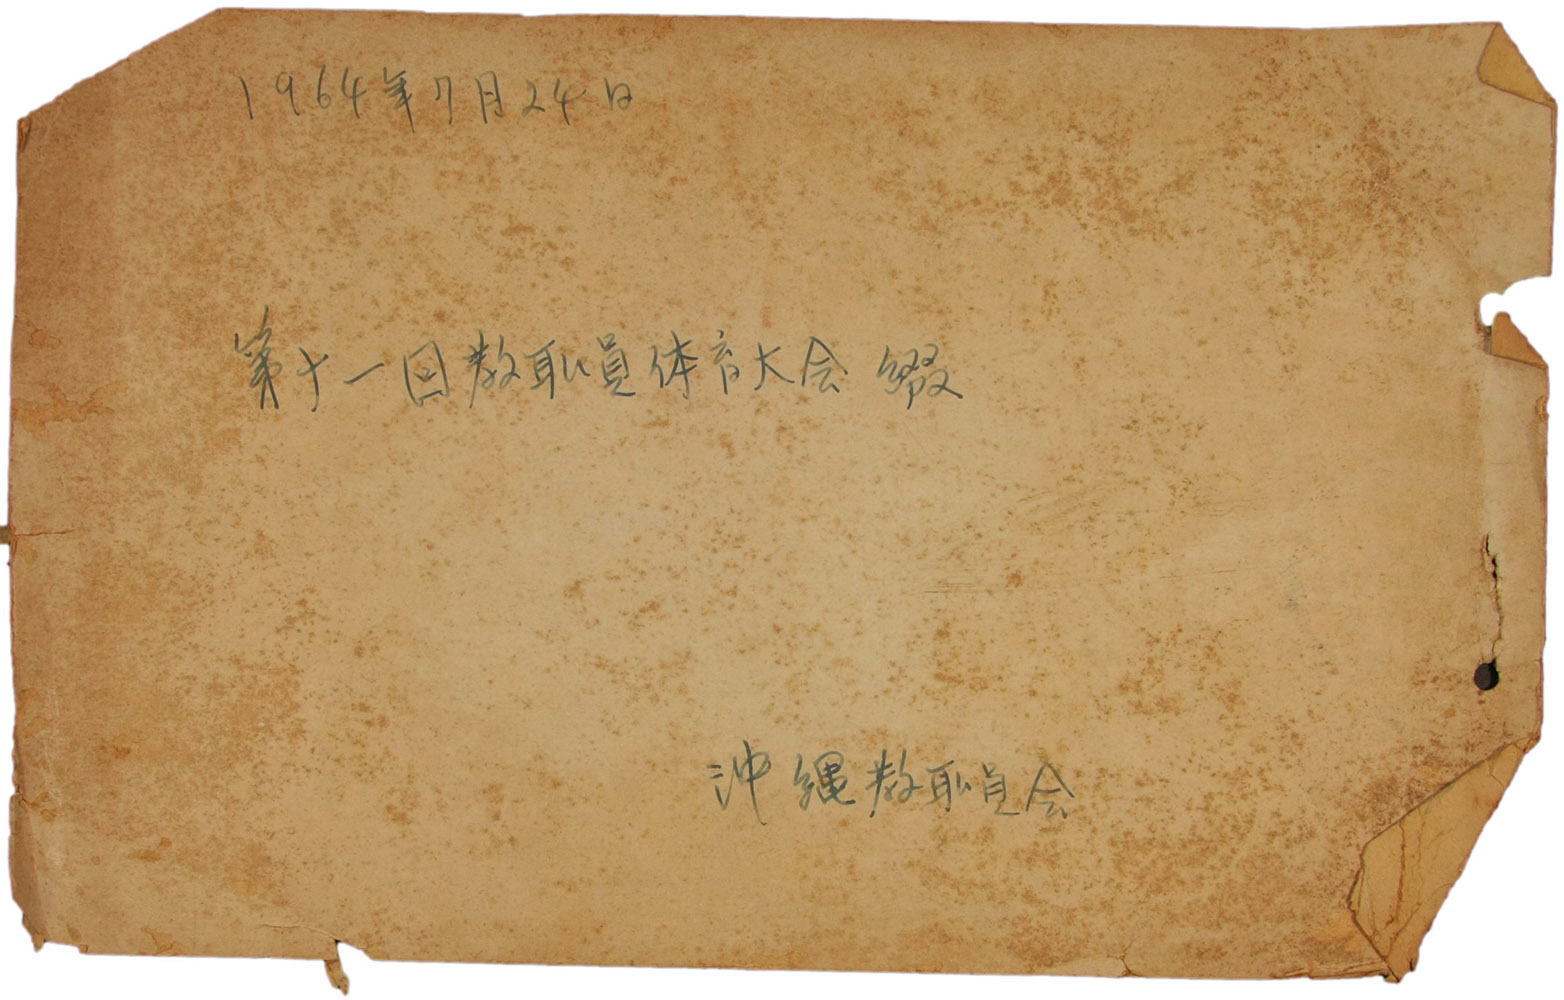 1964年7月24日
第十一回教職員体育大会 綴
沖縄教職員会